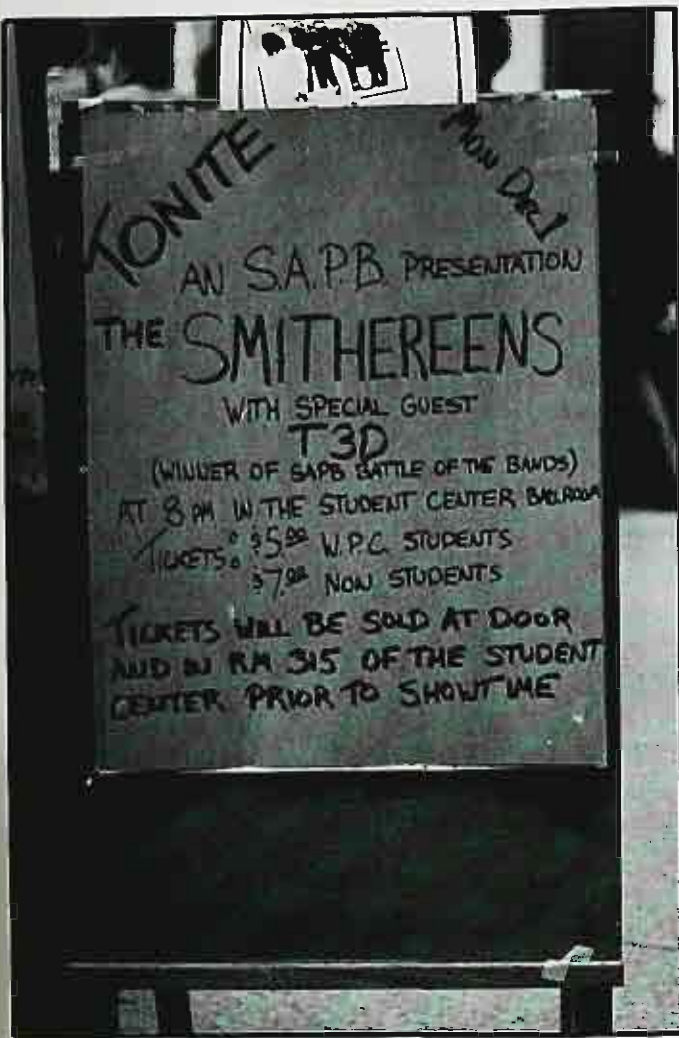 TONITE
MON DEC. 1
AN S.A.P.B. PRESENTATION
THE SMITHEREENS
WITH SPECIAL GUEST
T3D
(WINNER OF SAPB BATTLE OF THE BANDS)
AT 8 PM IN THE STUDENT CENTER BALLROOM
TICKETS: $5.00 W.P.C. STUDENTS
$7.00 NON STUDENTS
TICKETS WILL BE SOLD AT DOOR
AND IN RM 315 OF THE STUDENT
CENTER PRIOR TO SHOWTIME